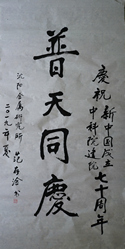 慶祝新中国成立七十周年
中科院建院
普天同慶
沈阳金属研究所
二〇一九年夏